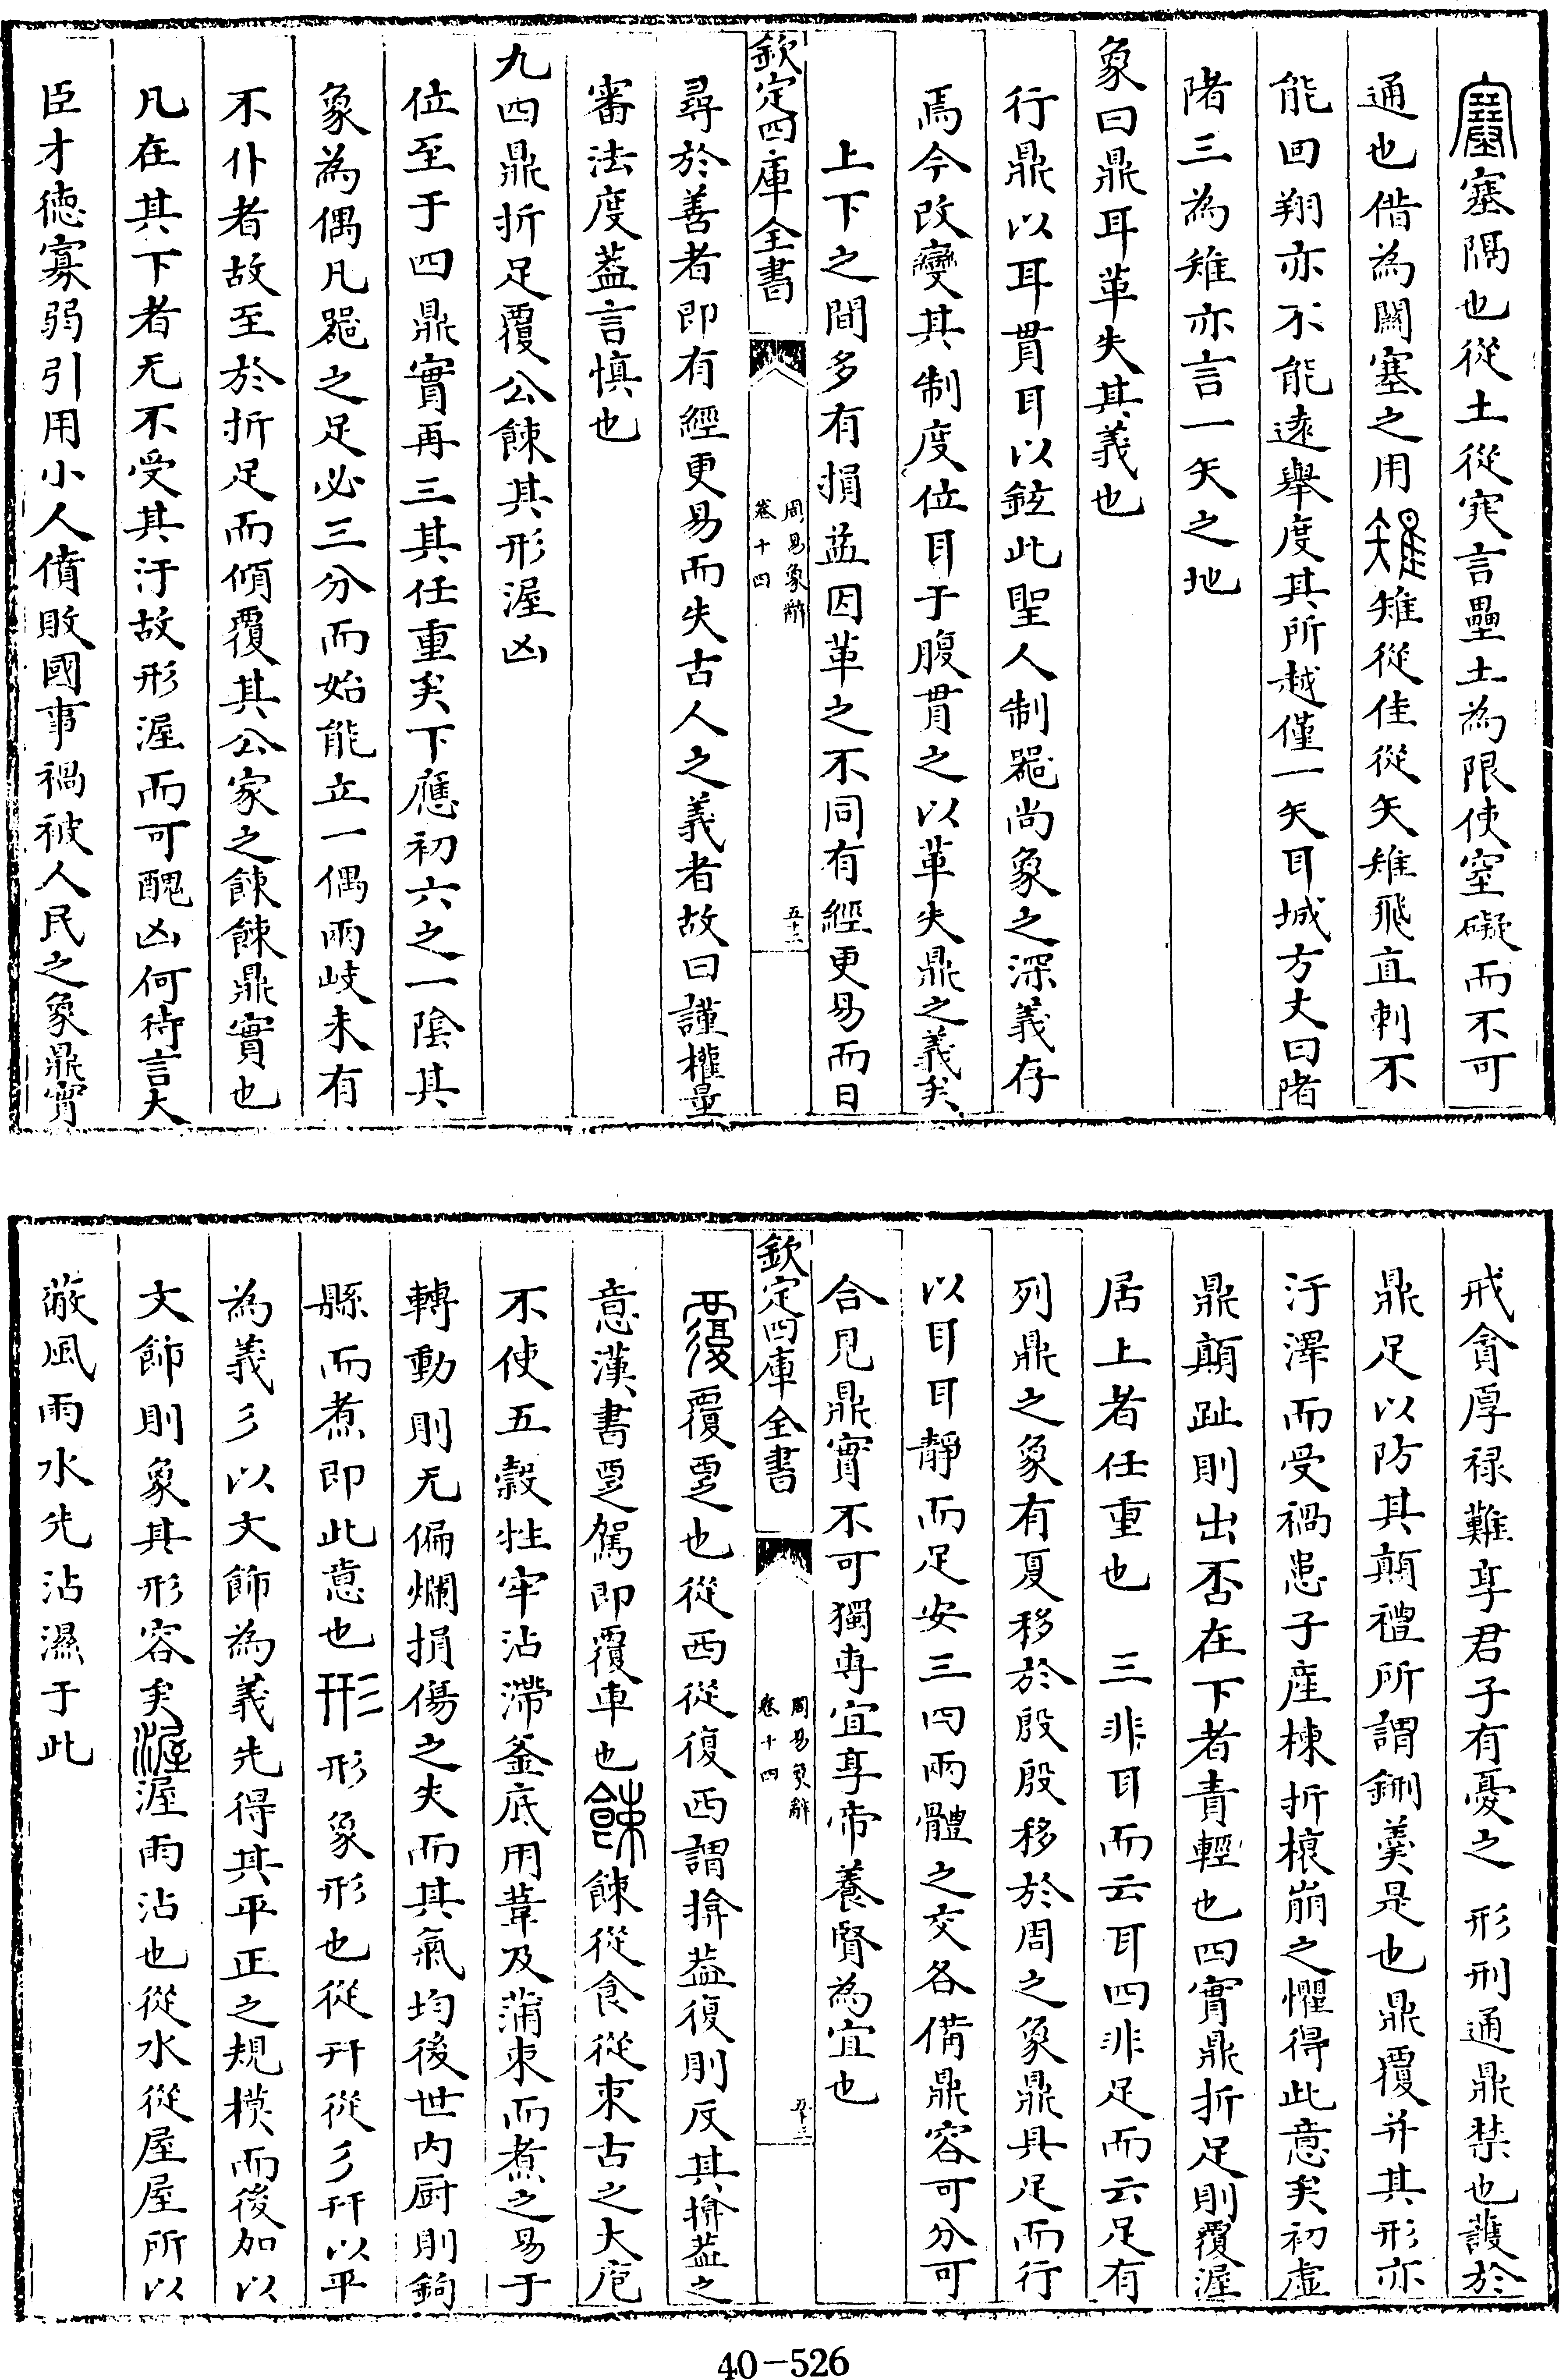 塞隔也從土從穴言壘土為限使窒礙而不可
通也借為闗塞之用雉從隹從矢雉飛直刺不
能回翔亦不能遠舉度其所越僅一矢耳城方丈曰堵
堵三為雉亦言一矢之地
象曰鼎耳革失其義也
行鼎以耳貫耳以鉉此聖人制器尚象之深義存
焉今改變其制度位耳于腹貫之以革失鼎之義矣
上下之間多有損益因革之不同有經更易而日
欽定四庫全書
周易象辭
卷十四
五十二
尋於善者即有經更易而失古人之義者故曰謹權量
審法度葢言慎也
九四鼎折足覆公餗其形渥凶
位至于四鼎實再三其任重矣下應初六之一陰其
象為偶凡器之足必三分而始能立一偶兩岐未有
不仆者故至於折足而傾覆其公家之餗餗鼎實也
凡在其下者无不受其汙故形渥而可醜凶何待言大
臣才徳寡弱引用小人僨敗國事禍被人民之象鼎實
戒貪厚禄難享君子有憂之 形刑通鼎禁也護於
鼎足以防其顛禮所謂鉶羮是也鼎覆并其形亦
汙澤而受禍患子産棟折榱崩之懼得此意矣初虚
鼎顛趾則出否在下者責輕也四實鼎折足則覆渥
居上者任重也 三非耳而云耳四非足而云足有
列鼎之象有夏移於殷殷移於周之象鼎具足而行
以耳耳靜而足安三四兩體之交各備鼎容可分可
合見鼎實不可獨専宜享帝養賢為宜也
欽定四庫全書
周易象辭
卷十四
五十三
覆覂也從襾從復襾謂揜葢復則反其揜葢之
意漢書覂駕即覆車也餗從食從束古之大庖
不使五穀牲牢沾滯釜底用葦及蒲束而煮之易于
轉動則无偏爛損傷之失而其氣均後世内厨則鉤
縣而煮即此意也形象形也從幵從彡幵以平
為義彡以文飾為義先得其平正之規模而後加以
文飾則象其形容矣渥雨沾也從水從屋屋所以
蔽風雨水先沾濕于此
40-526